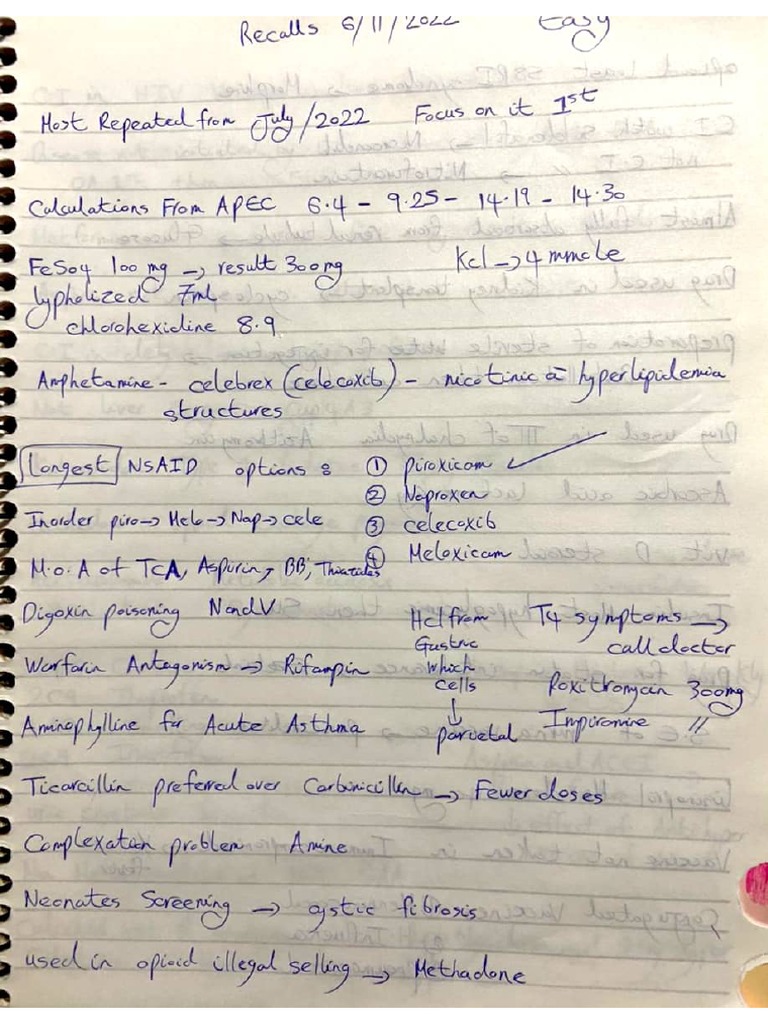 Recalls 6/11/2022 Easy
Most Repeated from July/2022 Focus on it 1st
Calculations From APEC 6.4 - 9.25 - 14.19 - 14.30
FeSo4 100 mg → result 300mg Kcl → 4 mmole
lypholized 7ml
chlorohexidine 8.9
Amphetamine - celebrex (celecoxib) - nicotinic a hyperlipidemia
structures
Longest NSAID options : ① piroxicam ✓
② Naproxen
Inorder piro → Melo → Nap → cele ③ celecoxib
④ Meloxicam
M.o.A of TCA, Aspirin, BB, Thiazides
Digoxin poisoning NandV
Hcl from
Gastric
which
cells
↓
parietal
T4 symptoms →
call doctor
Roxitromycin 300mg
Impiramine //
Warfarin Antagonism → Rifampin
Aminophylline for Acute Asthma
Ticarcillin preferred over Carbinicillin → Fewer doses
Complexation problem Amine
Neonates Screening → cystic fibrosis
used in opioid illegal selling → Methadone